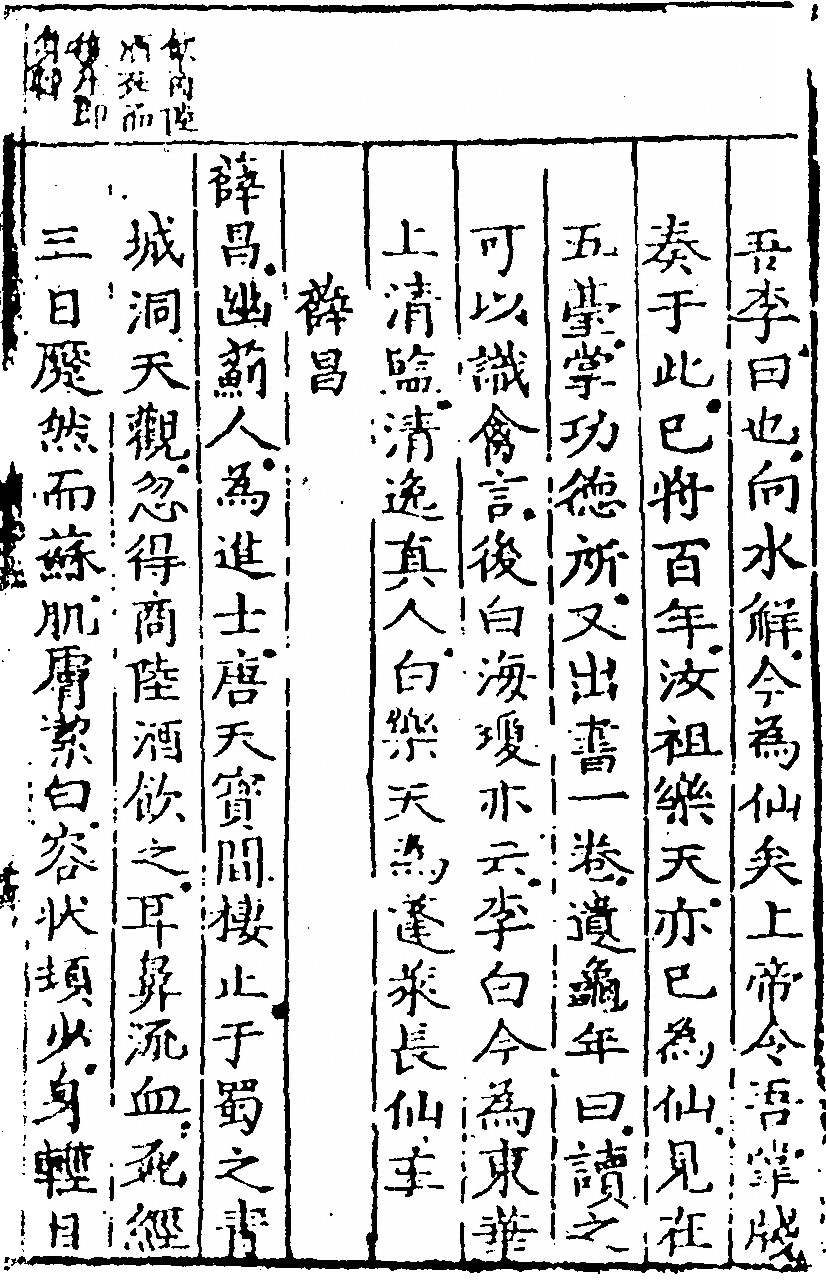 吾李白也向水解今為仙矣上帝令吾掌牋
奏于此已將百年汝祖樂天亦已為仙見在
五臺掌功德所又出書一卷遺龜年曰讀之
可以識禽言後白海瓊亦云李白今為東華
上清監清逸真人白樂天為蓬萊長仙主
薛昌
薛昌幽薊人為進士唐天寶間棲止于蜀之青
城洞天觀忽得商陸酒飲之耳鼻流血死經
三日歘然而蘇肌膚潔白容狀頓少身輕目
飲商陸
酒死而